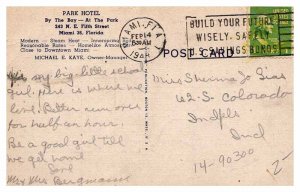 PARK HOTEL
By The Bay — At The Park
343 N. E. Fifth Street
Miami 36, Florida
Modern — Steam Heat — Innerspring
Reasonable Rates — Homelike
Close to Downtown Miami
MICHAEL E. KAYE, Owner-Manager
MIAMI, FLA.
FEB 14
AM
194
BUILD YOUR FUTURE
WISELY, SAFELY
U.S. SAVINGS BONDS
POST CARD
my big little school
girl, here is where we
live. Better run over
for half an hour.
Be a good girl till
we get home
Love
Mr + Mrs Bergman
Miss
62 S. Colorado
Indpls
Ind
14-90300